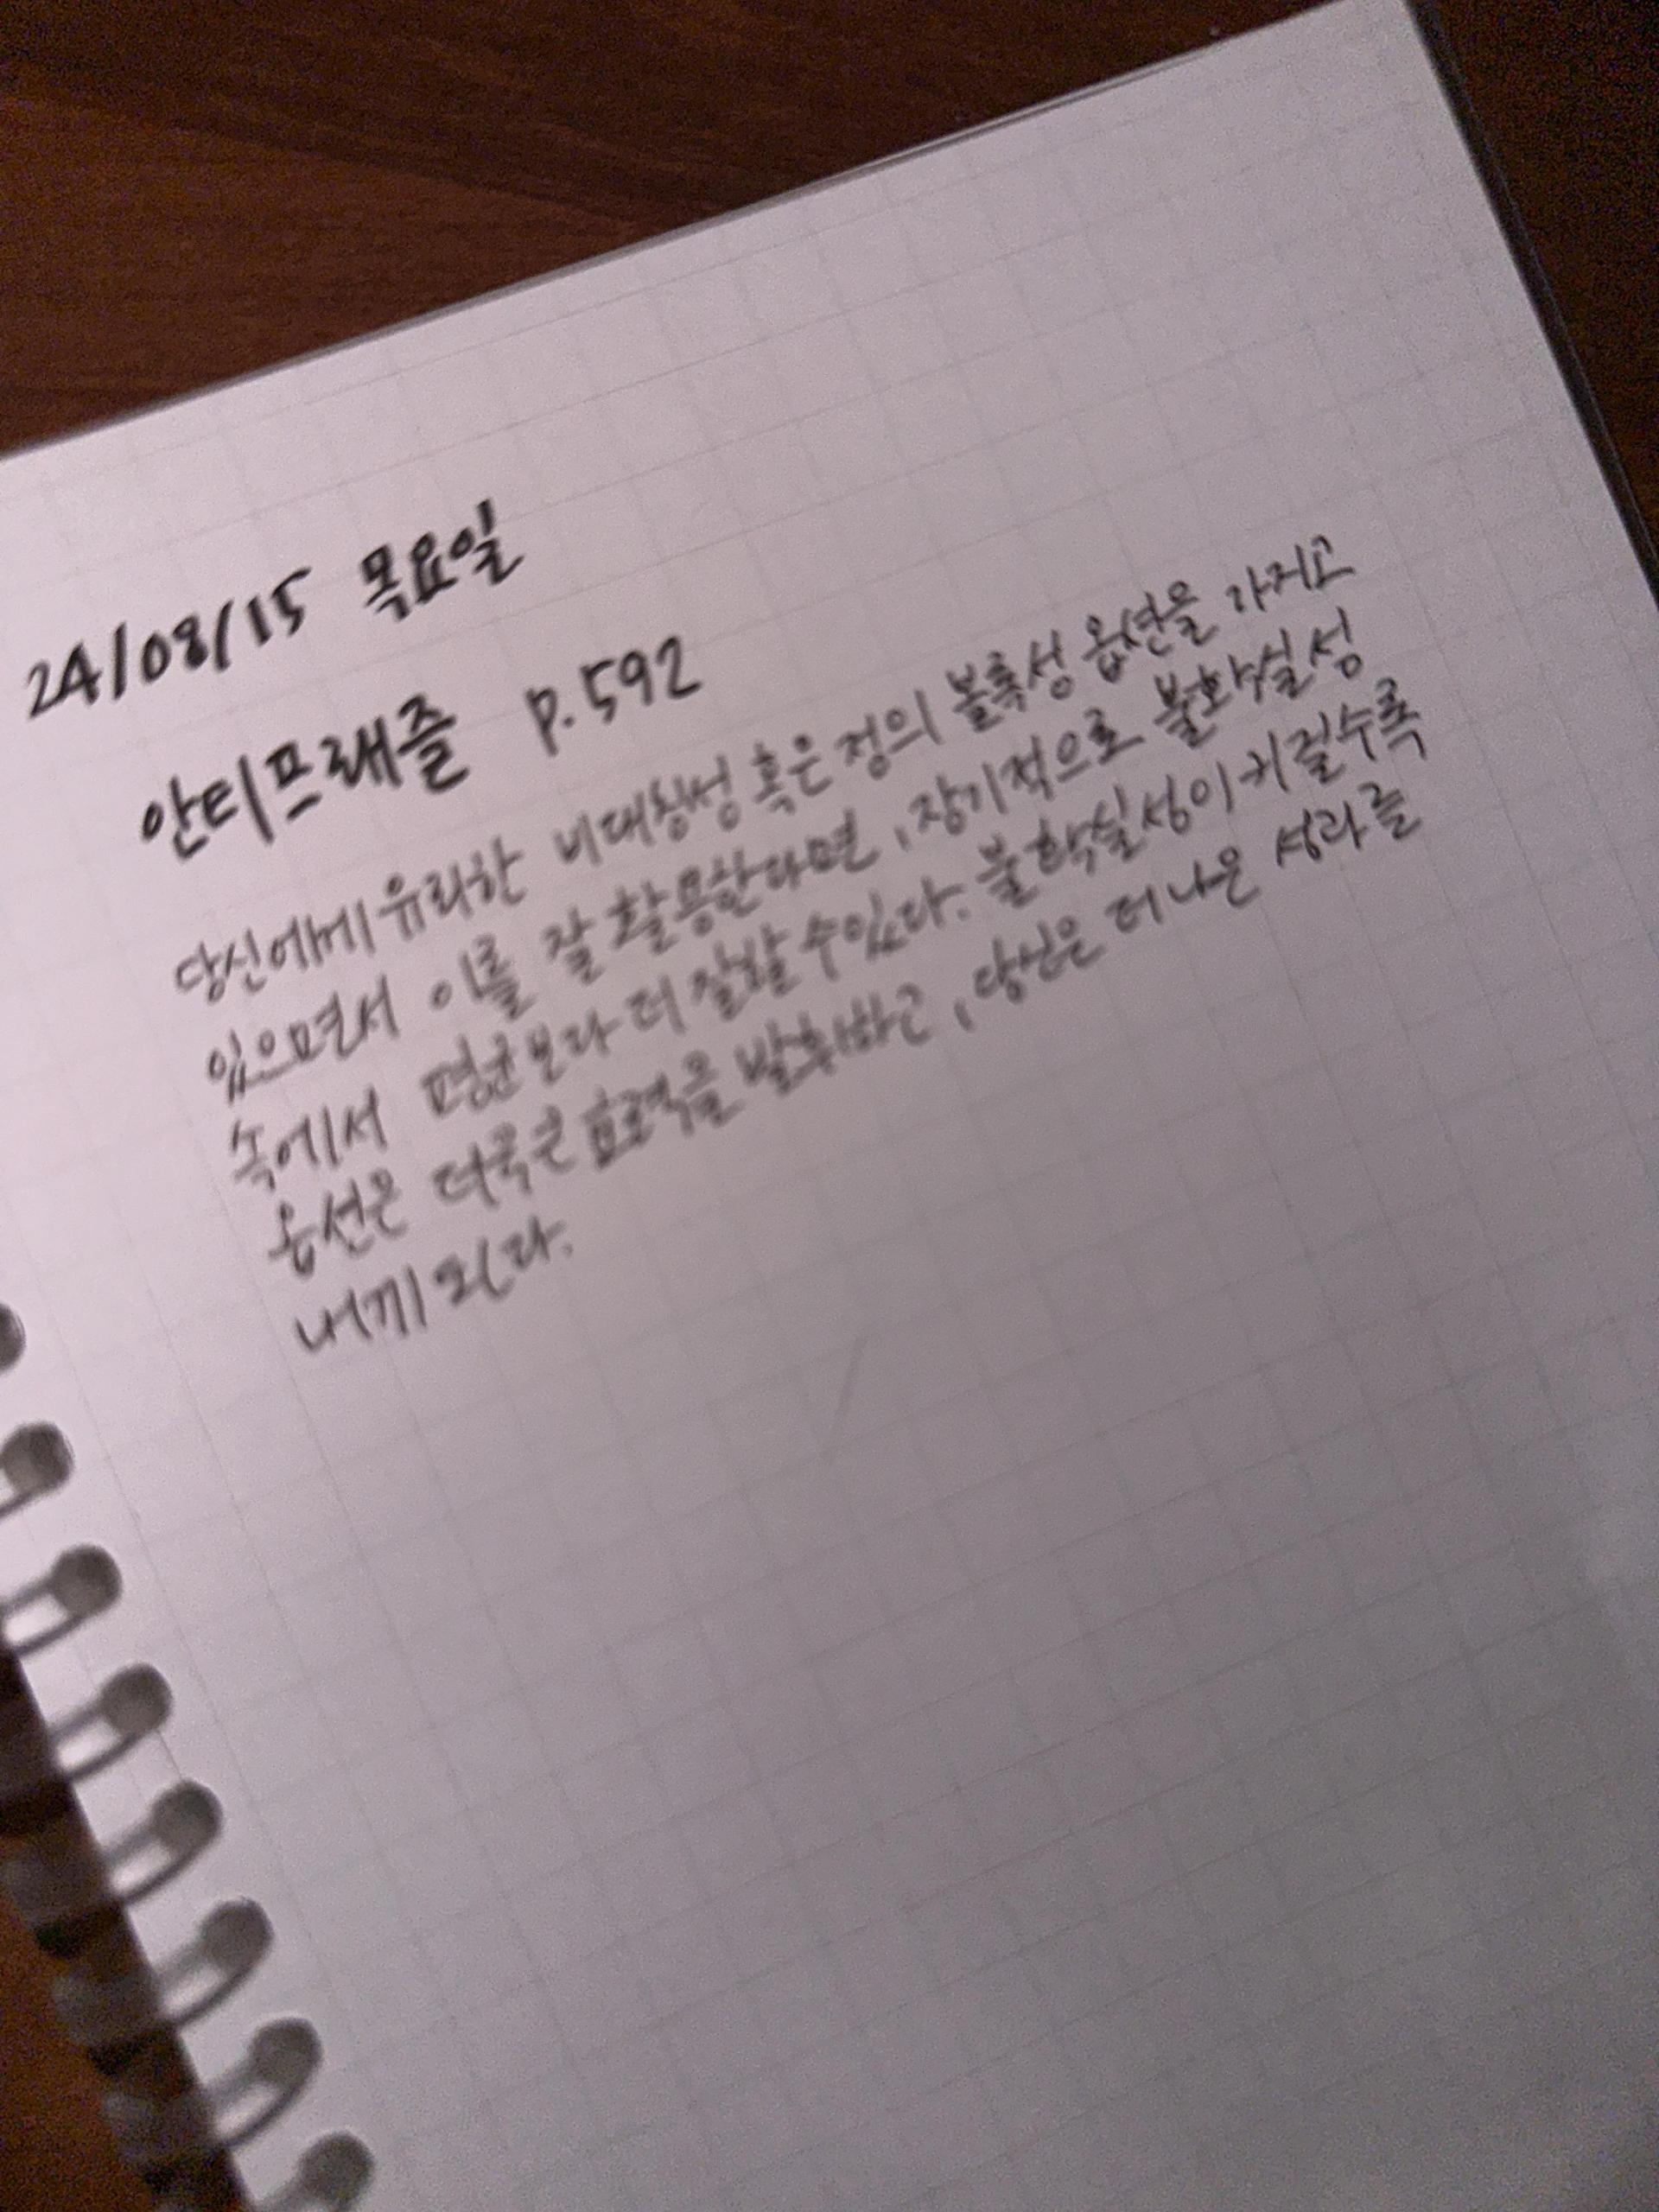 24/08/15 목요일
안티프래즐 p.592
당신에게 유리한 비대칭성 혹은 정의 볼록성 옵션을 가지고
있으면서 이를 잘 활용한다면, 장기적으로 불확실성
속에서 평균보다 더 잘할 수 있다. 불확실성이 커질수록
옵션은 더욱 큰 효력을 발휘하고, 당신은 더 나은 성과를
내게 된다.